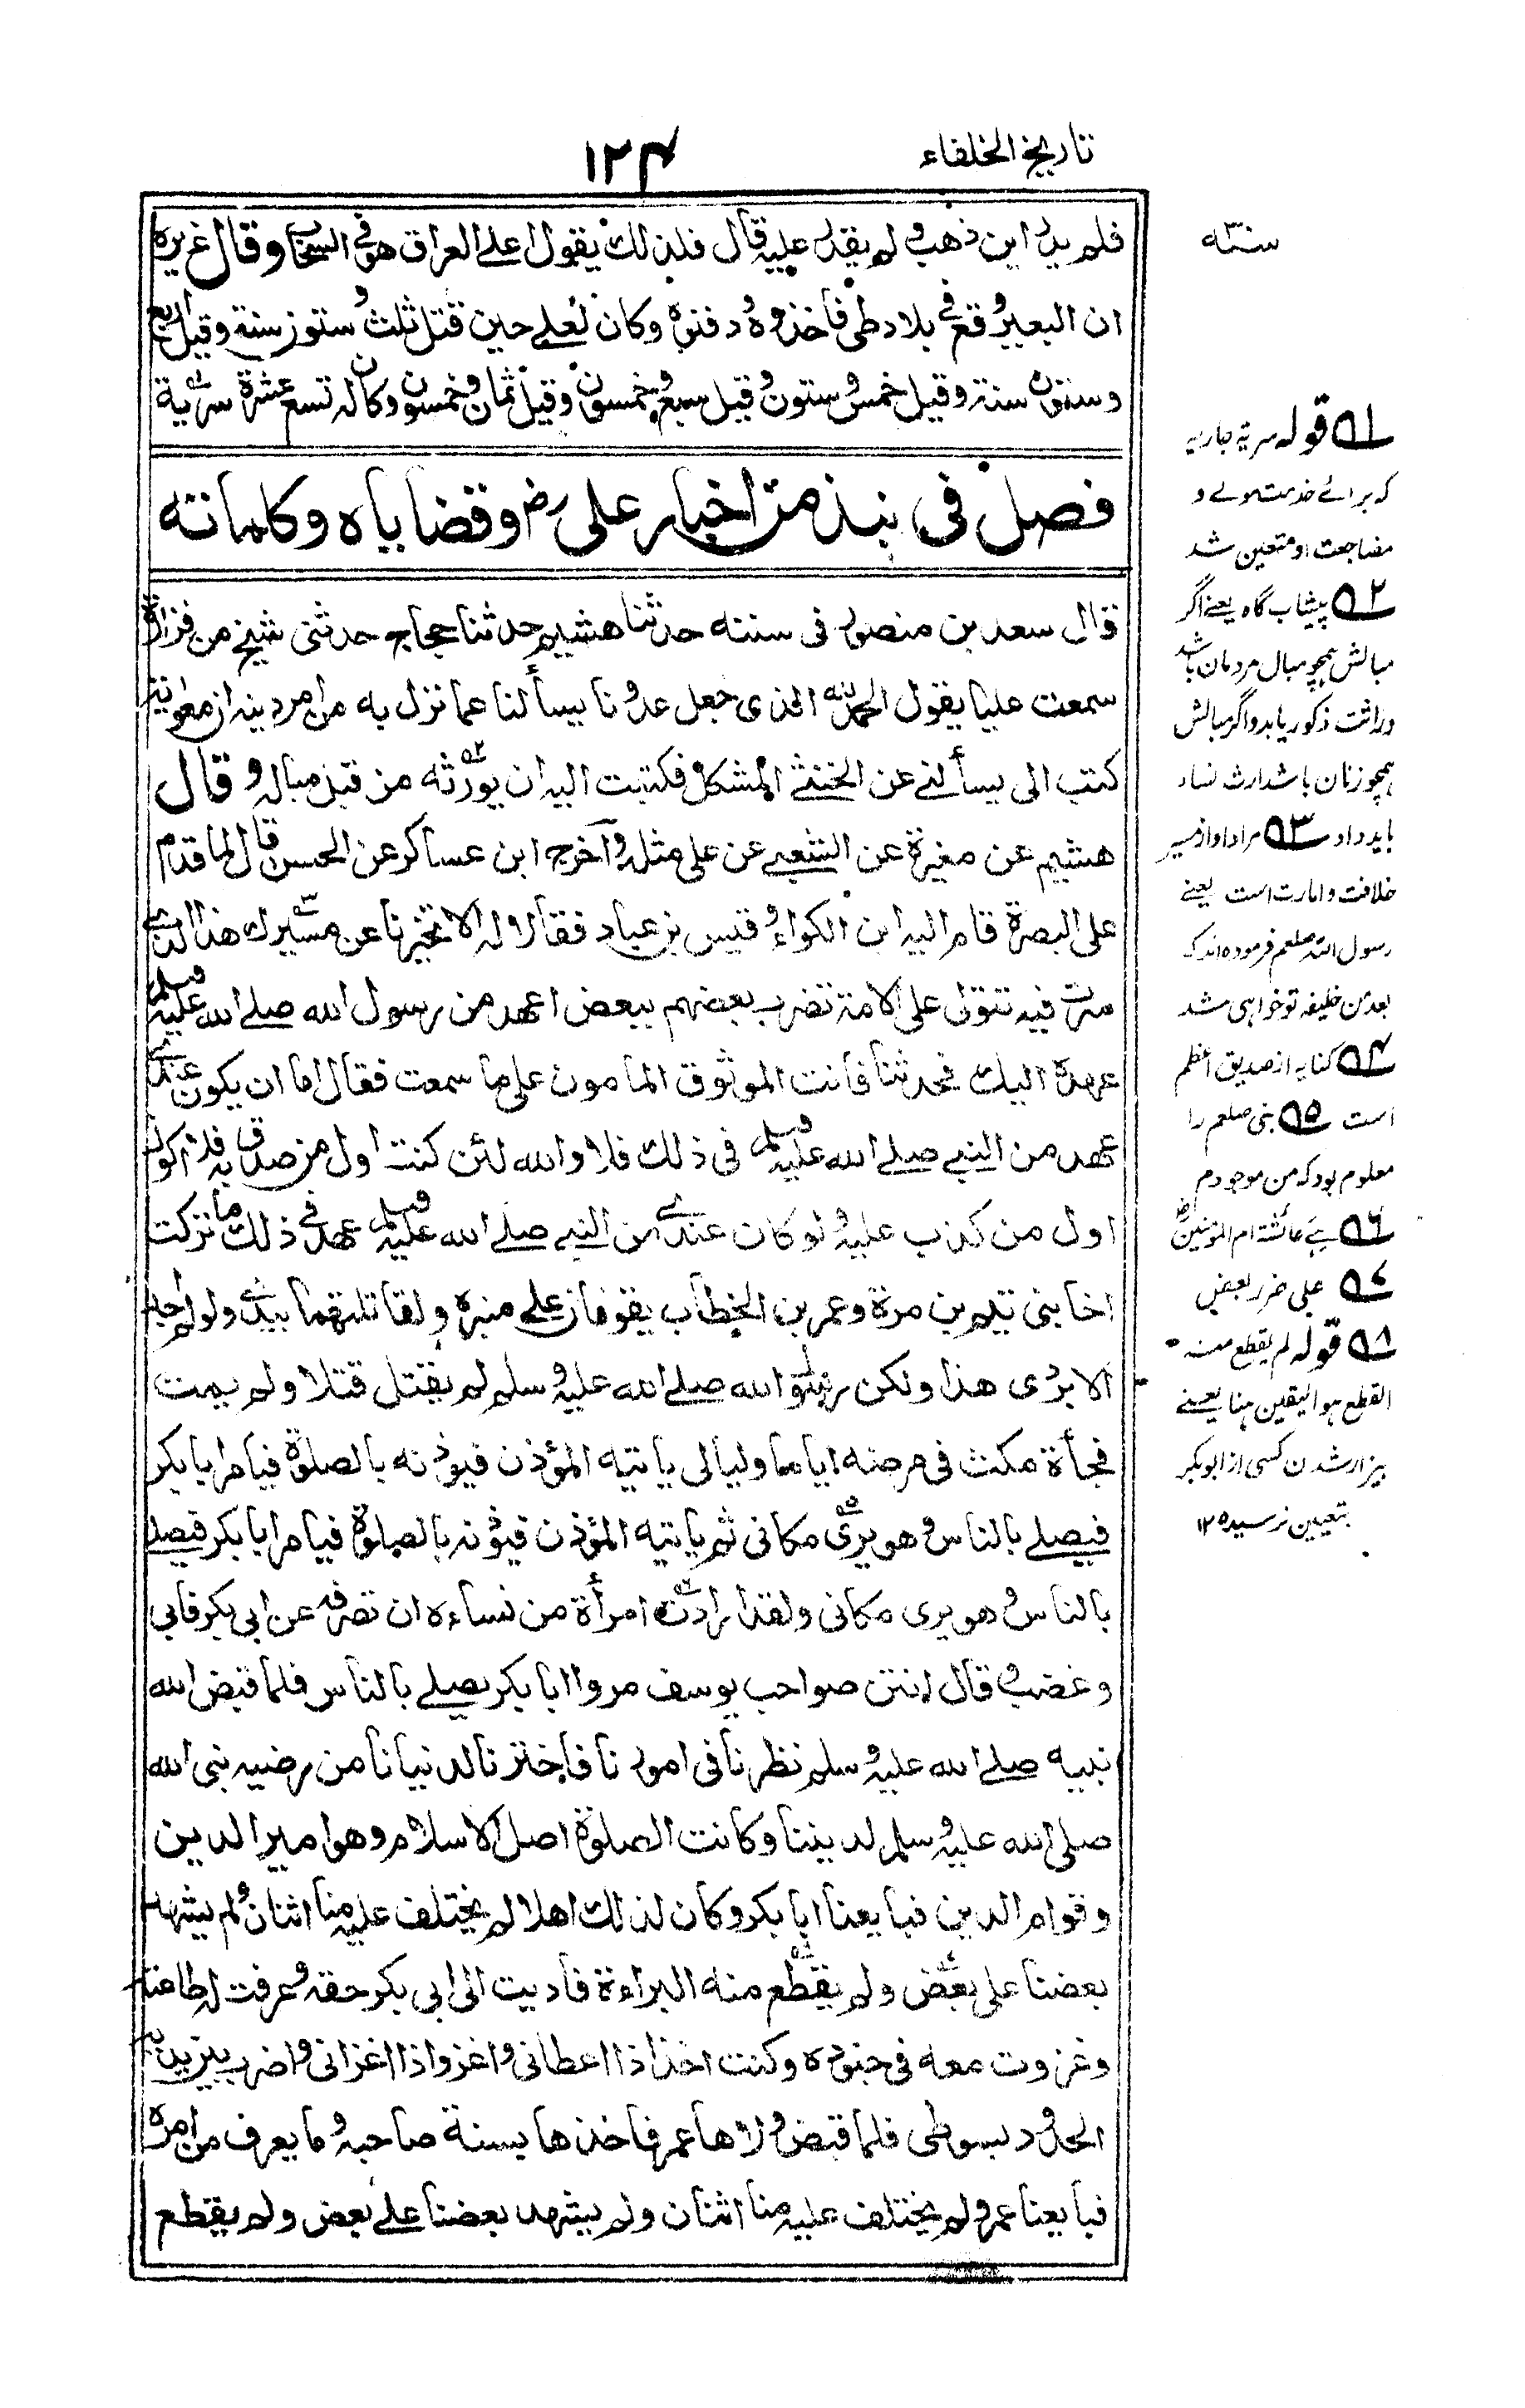 تاريخ الخلفاء
١٢٤
فلم يدر اين ذهب ولم يقدر عليه قال فلذلك يقول اهل العراق هو فى السحاب وقال غيره
ان البعير وقع فى بلاد طى فاخذوه ودفنوه وكان لعلے حين قتل ثلث وستون سنة وقيل اربع
وستون سنة وقيل خمس وستون وقيل سبع وخمسون وقيل ثمان وخمسون وكان له تسع عشرة سرية
فصل فى نبذ من اخبار على رض وقضاياه وكلماته
قال سعد بن منصور فى سننه حدثنا هشيم حدثنا حجاج حدثنى شيخ من فزارة
سمعت عليا يقول الحمد لله الذى جعل عدونا يسألنا عما نزل به من امر دينه ان معاوية
كتب الى يسألنے عن الخنثے المشكل فكتبت اليه ان يورثه من قبل مباله وقال
هشيم عن مغيرة عن الشعبے عن على مثله وأخرج ابن عساكر عن الحسن قال لما قدم
على البصرة قام اليه ابن الكواء وقيس بن عباد فقالا له الا تخبرنا عن مسيرك هذا الذى
سرت فيه تتولى على الامة تضرب بعضهم ببعض اعهد من رسول الله صلے الله عليه وسلم
عهده اليك فحدثنا فانت الموثوق المامون على ما سمعت فقال اما ان يكون عندى
عهد من النبے صلے الله عليه وسلم فى ذلك فلا والله لئن كنت اول من صدق به فلا اكون
اول من كذب عليه ولو كان عندى من النبے صلے الله عليه وسلم عهد فى ذلك ما تركت
اخا بنى تيم بن مرة وعمر بن الخطاب يقومان علے منبره ولقاتلتهما بيدى ولو لم اجد
الا بردى هذا ولكن رسول الله صلے الله عليه وسلم لم يقتل قتلا ولم يمت
فجأة مكث فى مرضه اياما وليالى ياتيه المؤذن فيؤذنه بالصلوة فيامر ابا بكر
فيصلے بالناس وهو يرى مكانى ثم ياتيه المؤذن فيؤذنه بالصلوة فيامر ابا بكر فيصلے
بالناس وهو يرى مكانى ولقد ارادت امرأة من نساءه ان تصرفه عن ابى بكر فابى
وغضب وقال انتن صواحب يوسف مروا ابا بكر يصلے بالناس فلما قبض الله
نبيه صلے الله عليه وسلم نظرنا فى امورنا فاخترنا لدنيانا من رضيه نبى الله
صلى الله عليه وسلم لديننا وكانت الصلوة اصل الاسلام وهو امير الدين
وقوام الدين فبايعنا ابا بكر وكان لذلك اهلا لم يختلف عليه منا اثنان ولم يشهد
بعضنا على بعض ولم يقطع منه البراءة فاديت الى ابى بكر حقه وعرفت له طاعته
وغزوت معه فى جنوده وكنت اخذ اذا اعطانى واغزو اذا اغزانى واضرب بين يديه
الحدود بسوطى فلما قبض ولاها عمر فاخذها بسنة صاحبه وما يعرف من امره
فبايعنا عمر ولم يختلف عليه منا اثنان ولم يشهد بعضنا علے بعض ولم يقطع
سنه
١ قوله سرية جاريه
كه برائے خدمت مولے و
مضاجعت او متعين شد
٢ پيشاب گاه يعنے اگر
مبالش همچو مبال مردمان باشد
وراثت ذكور يابد واگر مبالش
همچو زنان باشد ارث نساء
بايد داد ٣ مراد او از مسير
خلافت وامارت است يعنے
رسول الله صلعم فرموده اند كه
بعد من خليفه تو خواهى شد
٤ كنايه از صديق اعظم
است ٥ نبى صلعم را
معلوم بود كه من موجودم
٦ هى عائشة ام المؤمنين رض
٧ على ضرر بعض
٨ قوله لم يقطع منه
القطع هو اليقين هنا يعنے
بيزار شدن كسى از ابو بكر
بتعيين نرسيده ١٢